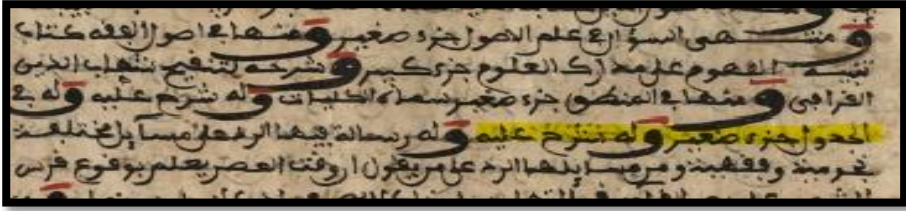 ومنتهى السؤل في علم الاصول جزء صغير ومنها في اصول الفقه كتاب
تنبيه الفهوم على مدارك العلوم جزء كبير وشرحه لتنقيح شهاب الدين
القرافي ومنها في المنطق جزء صغير سماه الكليات وله شرح عليه وله في
الجدول جزء صغير وله شرح عليه وله رسالة فيها الرد على مسايل مختلفة
نحوية وفقهية ومن مسايلها الرد على من يقول ان وقت العصر يعلم بوقوع قرص